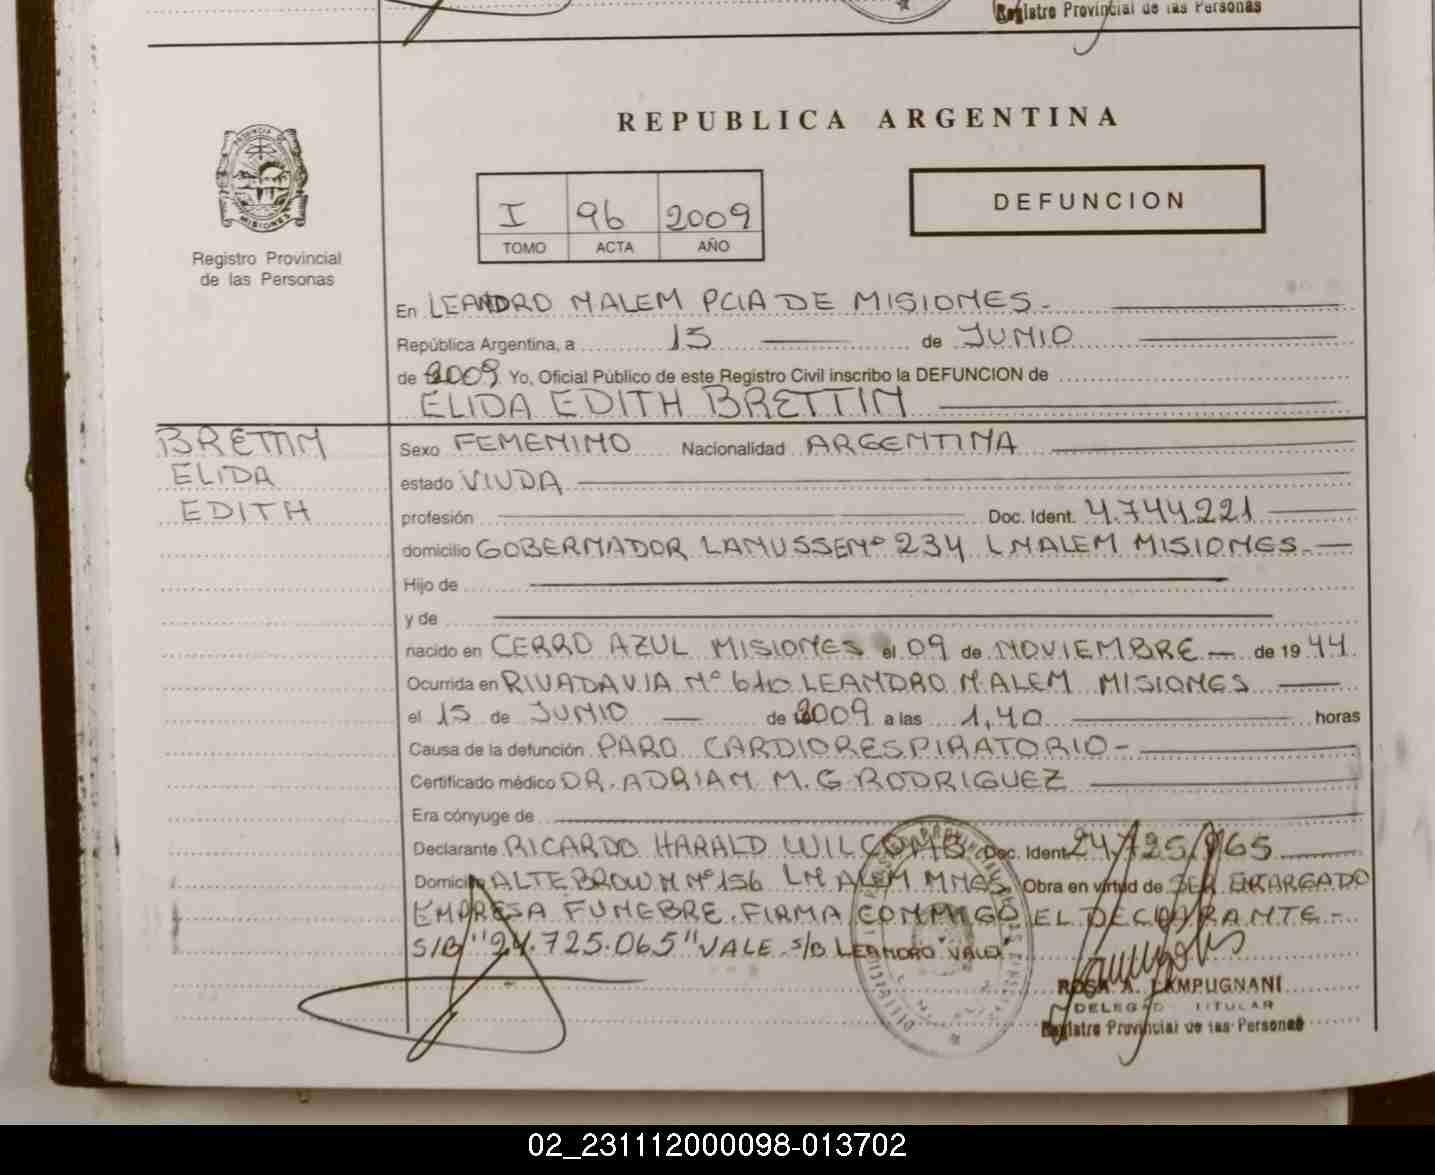 Registro Provincial de las Personas
REPUBLICA ARGENTINA
DEFUNCION
I 96 2009
TOMO ACTA AÑO
MISIONES
Registro Provincial
de las Personas
En LEANDRO N ALEM PCIA DE MISIONES.
República Argentina, a 15 de JUNIO
de 2009 Yo, Oficial Público de este Registro Civil inscribo la DEFUNCION de
ELIDA EDITH BRETTIN
BRETTIN
ELIDA
EDITH
Sexo FEMENINO Nacionalidad ARGENTINA
estado VIUDA
profesión Doc. Ident. 4.744.221
domicilio GOBERNADOR LANUSSE Nº 234 L N ALEM MISIONES.
Hijo de
y de
nacido en CERRO AZUL MISIONES el 09 de NOVIEMBRE de 19 44.
Ocurrida en RIVADAVIA Nº 610 LEANDRO N ALEM MISIONES
el 15 de JUNIO de 2009 a las 1,40 horas
Causa de la defunción PARO CARDIORESPIRATORIO-
Certificado médico DR. ADRIAN M. G RODRIGUEZ
Era cónyuge de
Declarante RICARDO HARALD Doc. Ident.
Domicilio ALTE BROWN Nº 156 L N ALEM MNES Obra en virtud de SER ENCARGADO
EMPRESA FUNEBRE. FIRMA CONMIGO EL DECLARANTE-
S/B "24.725.065" VALE. S/B LEANDRO VALE
ROSA A. LAMPUGNANI
DELEGADO TITULAR
Registro Provincial de las Personas
02_231112000098-013702